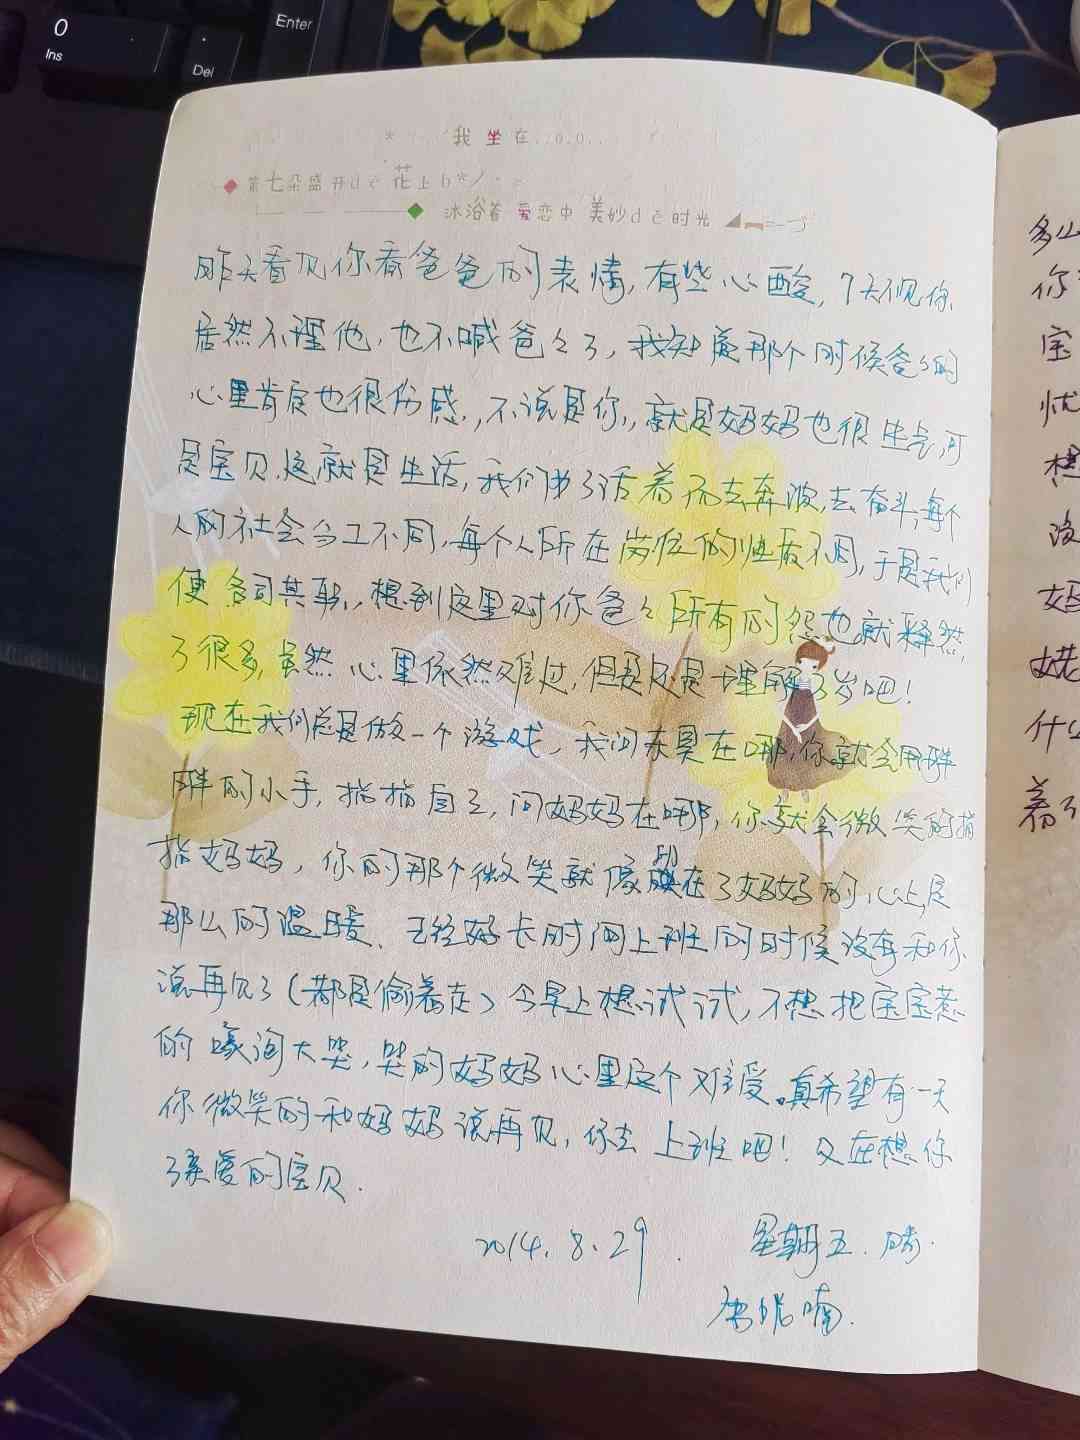 0
Ins
Enter
Del
我坐在
第七朵盛开de花上b*/
沐浴着 爱恋中 美妙de时光
昨天看见你看爸爸的表情,有些心酸,7天不见你
居然不理他,也不喊爸々了,我知道那个时候爸々的
心里肯定也很伤感,不说是你,就是妈妈也很生气,可
是宝贝,这就是生活,我们为了活着而去奔波,去奋斗,每个
人的社会分工不同,每个人所在岗位的性质不同,于是我们
便各司其职,想到这里对你爸々所有的怨也就释然
了很多,虽然心里依然难过,但是还是理解了些吧!
现在我们总是做一个游戏,我问东昊在哪,你就会用胖
胖的小手,指指自己,问妈妈在哪,你就会微笑的指
指妈妈,你的那个微笑就像刻在了妈妈的心上是
那么的温暖、已经好长时间上班的时候没有和你
说再见了(都是偷着走)今早上想试试,不想把宝宝惹
的嚎淘大哭,哭的妈妈心里这个难受。真希望有一天
你微笑的和妈妈说再见,你去上班吧!又在想你
了亲爱的宝贝.
2014.8.29. 星期五.晴.
多
你
宝
忧
想
没
妈
姥
什么
着了